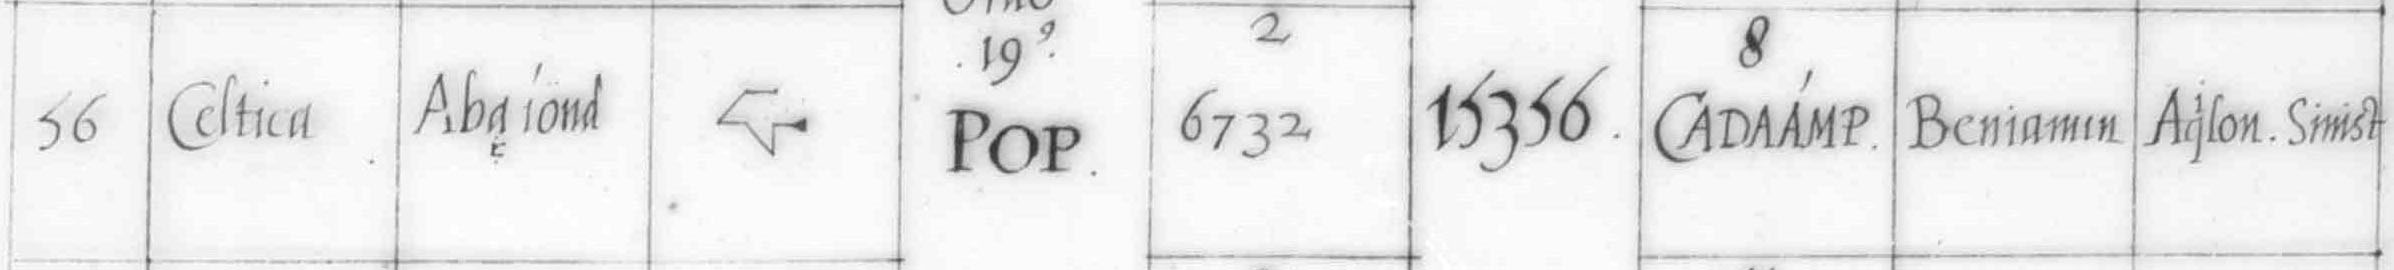 19º.
2
8
56 Celtica Abaiond POP. 6732 15356. CADAÁMP. Beniamin Aqlon. Sinist